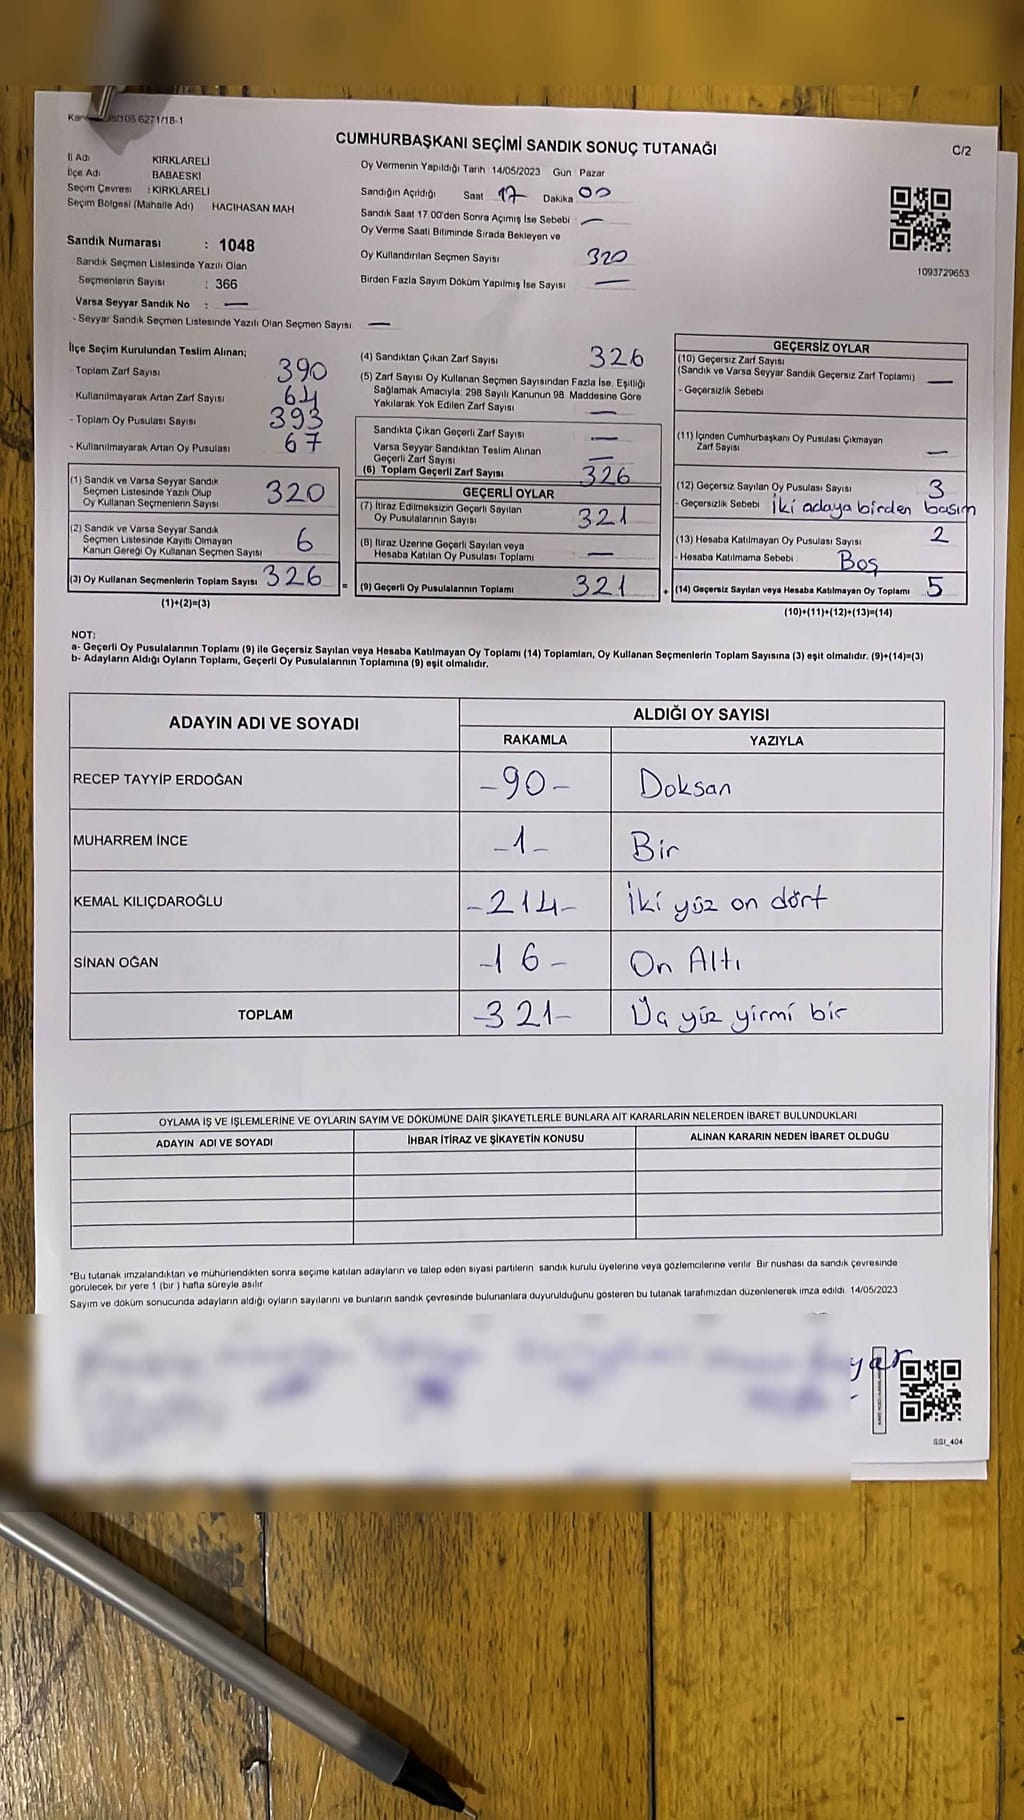 CUMHURBAŞKANI SEÇİMİ SANDIK SONUÇ TUTANAĞI
C/2
İl Adı KIRKLARELİ
İlçe Adı BABAESKİ
Seçim Çevresi : KIRKLARELİ
Seçim Bölgesi (Mahalle Adı) HACIHASAN MAH
Sandık Numarası : 1048
Sandık Seçmen Listesinde Yazılı Olan
Seçmenlerin Sayısı : 366
Varsa Seyyar Sandık No : —
- Seyyar Sandık Seçmen Listesinde Yazılı Olan Seçmen Sayısı —
Oy Vermenin Yapıldığı Tarih 14/05/2023 Gün Pazar
Sandığın Açıldığı Saat 17 Dakika 00
Sandık Saat 17.00'den Sonra Açımış İse Sebebi : —
Oy Verme Saati Bitiminde Sırada Bekleyen ve
Oy Kullandırılan Seçmen Sayısı 320
Birden Fazla Sayım Döküm Yapılmış İse Sayısı —
1093729653
İlçe Seçim Kurulundan Teslim Alınan;
- Toplam Zarf Sayısı 390
- Kullanılmayarak Artan Zarf Sayısı 64
- Toplam Oy Pusulası Sayısı 393
- Kullanılmayarak Artan Oy Pusulası 67
(1) Sandık ve Varsa Seyyar Sandık
Seçmen Listesinde Yazılı Olup
Oy Kullanan Seçmenlerin Sayısı 320
(2) Sandık ve Varsa Seyyar Sandık
Seçmen Listesinde Kayıtlı Olmayan
Kanun Gereği Oy Kullanan Seçmen Sayısı 6
(3) Oy Kullanan Seçmenlerin Toplam Sayısı 326
(1)+(2)=(3)
(4) Sandıktan Çıkan Zarf Sayısı 326
(5) Zarf Sayısı Oy Kullanan Seçmen Sayısından Fazla İse, Eşitliği
Sağlamak Amacıyla, 298 Sayılı Kanunun 98. Maddesine Göre
Yakılarak Yok Edilen Zarf Sayısı —
Sandıkta Çıkan Geçerli Zarf Sayısı —
Varsa Seyyar Sandıktan Teslim Alınan
Geçerli Zarf Sayısı —
(6) Toplam Geçerli Zarf Sayısı 326
GEÇERLİ OYLAR
(7) İtiraz Edilmeksizin Geçerli Sayılan
Oy Pusulalarının Sayısı 321
(8) İtiraz Üzerine Geçerli Sayılan veya
Hesaba Katılan Oy Pusulası Toplamı —
= (9) Geçerli Oy Pusulalarının Toplamı 321
GEÇERSİZ OYLAR
(10) Geçersiz Zarf Sayısı
(Sandık ve Varsa Seyyar Sandık Geçersiz Zarf Toplamı) —
- Geçersizlik Sebebi
(11) İçinden Cumhurbaşkanı Oy Pusulası Çıkmayan
Zarf Sayısı —
(12) Geçersiz Sayılan Oy Pusulası Sayısı 3
- Geçersizlik Sebebi İki adaya birden basım
(13) Hesaba Katılmayan Oy Pusulası Sayısı 2
- Hesaba Katılmama Sebebi Boş
+ (14) Geçersiz Sayılan veya Hesaba Katılmayan Oy Toplamı 5
(10)+(11)+(12)+(13)=(14)
NOT:
a- Geçerli Oy Pusulalarının Toplamı (9) ile Geçersiz Sayılan veya Hesaba Katılmayan Oy Toplamı (14) Toplamları, Oy Kullanan Seçmenlerin Toplam Sayısına (3) eşit olmalıdır. (9)+(14)=(3)
b- Adayların Aldığı Oyların Toplamı, Geçerli Oy Pusulalarının Toplamına (9) eşit olmalıdır.
ADAYIN ADI VE SOYADI ALDIĞI OY SAYISI
RAKAMLA YAZIYLA
RECEP TAYYİP ERDOĞAN -90- Doksan
MUHARREM İNCE -1- Bir
KEMAL KILIÇDAROĞLU -214- İki yüz on dört
SİNAN OĞAN -16- On Altı
TOPLAM -321- Üç yüz yirmi bir
OYLAMA İŞ VE İŞLEMLERİNE VE OYLARIN SAYIM VE DÖKÜMÜNE DAİR ŞİKAYETLERLE BUNLARA AİT KARARLARIN NELERDEN İBARET BULUNDUKLARI
ADAYIN ADI VE SOYADI İHBAR İTİRAZ VE ŞİKAYETİN KONUSU ALINAN KARARIN NEDEN İBARET OLDUĞU
*Bu tutanak imzalandıktan ve mühürlendikten sonra seçime katılan adayların ve talep eden siyasi partilerin sandık kurulu üyelerine veya gözlemcilerine verilir. Bir nüshası da sandık çevresinde
görülecek bir yere 1 (bir ) hafta süreyle asılır
Sayım ve döküm sonucunda adayların aldığı oyların sayılarını ve bunların sandık çevresinde bulunanlara duyurulduğunu gösteren bu tutanak tarafımızdan düzenlenerek imza edildi. 14/05/2023
SSI_404